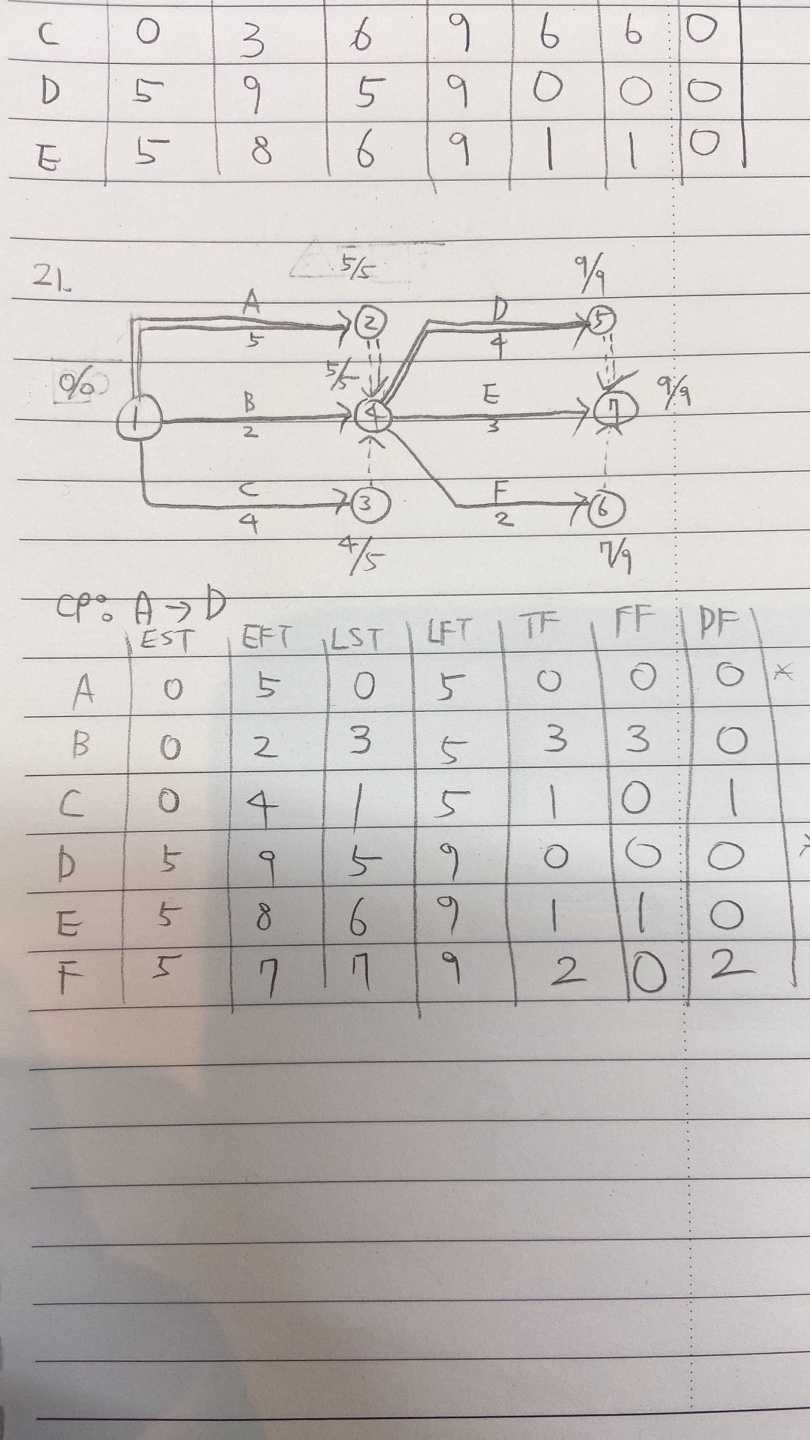 C 0 3 6 9 6 6 0
D 5 9 5 9 0 0 0
E 5 8 6 9 1 1 0
21.
5/5 9/9
A D
2 5
5 4
0/0 5/5 9/9
B E
1 4 7
2 3
C F
3 6
4 2
4/5 7/9
CP: A → D
EST EFT LST LFT TF FF DF
A 0 5 0 5 0 0 0 *
B 0 2 3 5 3 3 0
C 0 4 1 5 1 0 1
D 5 9 5 9 0 0 0
E 5 8 6 9 1 1 0
F 5 7 7 9 2 0 2